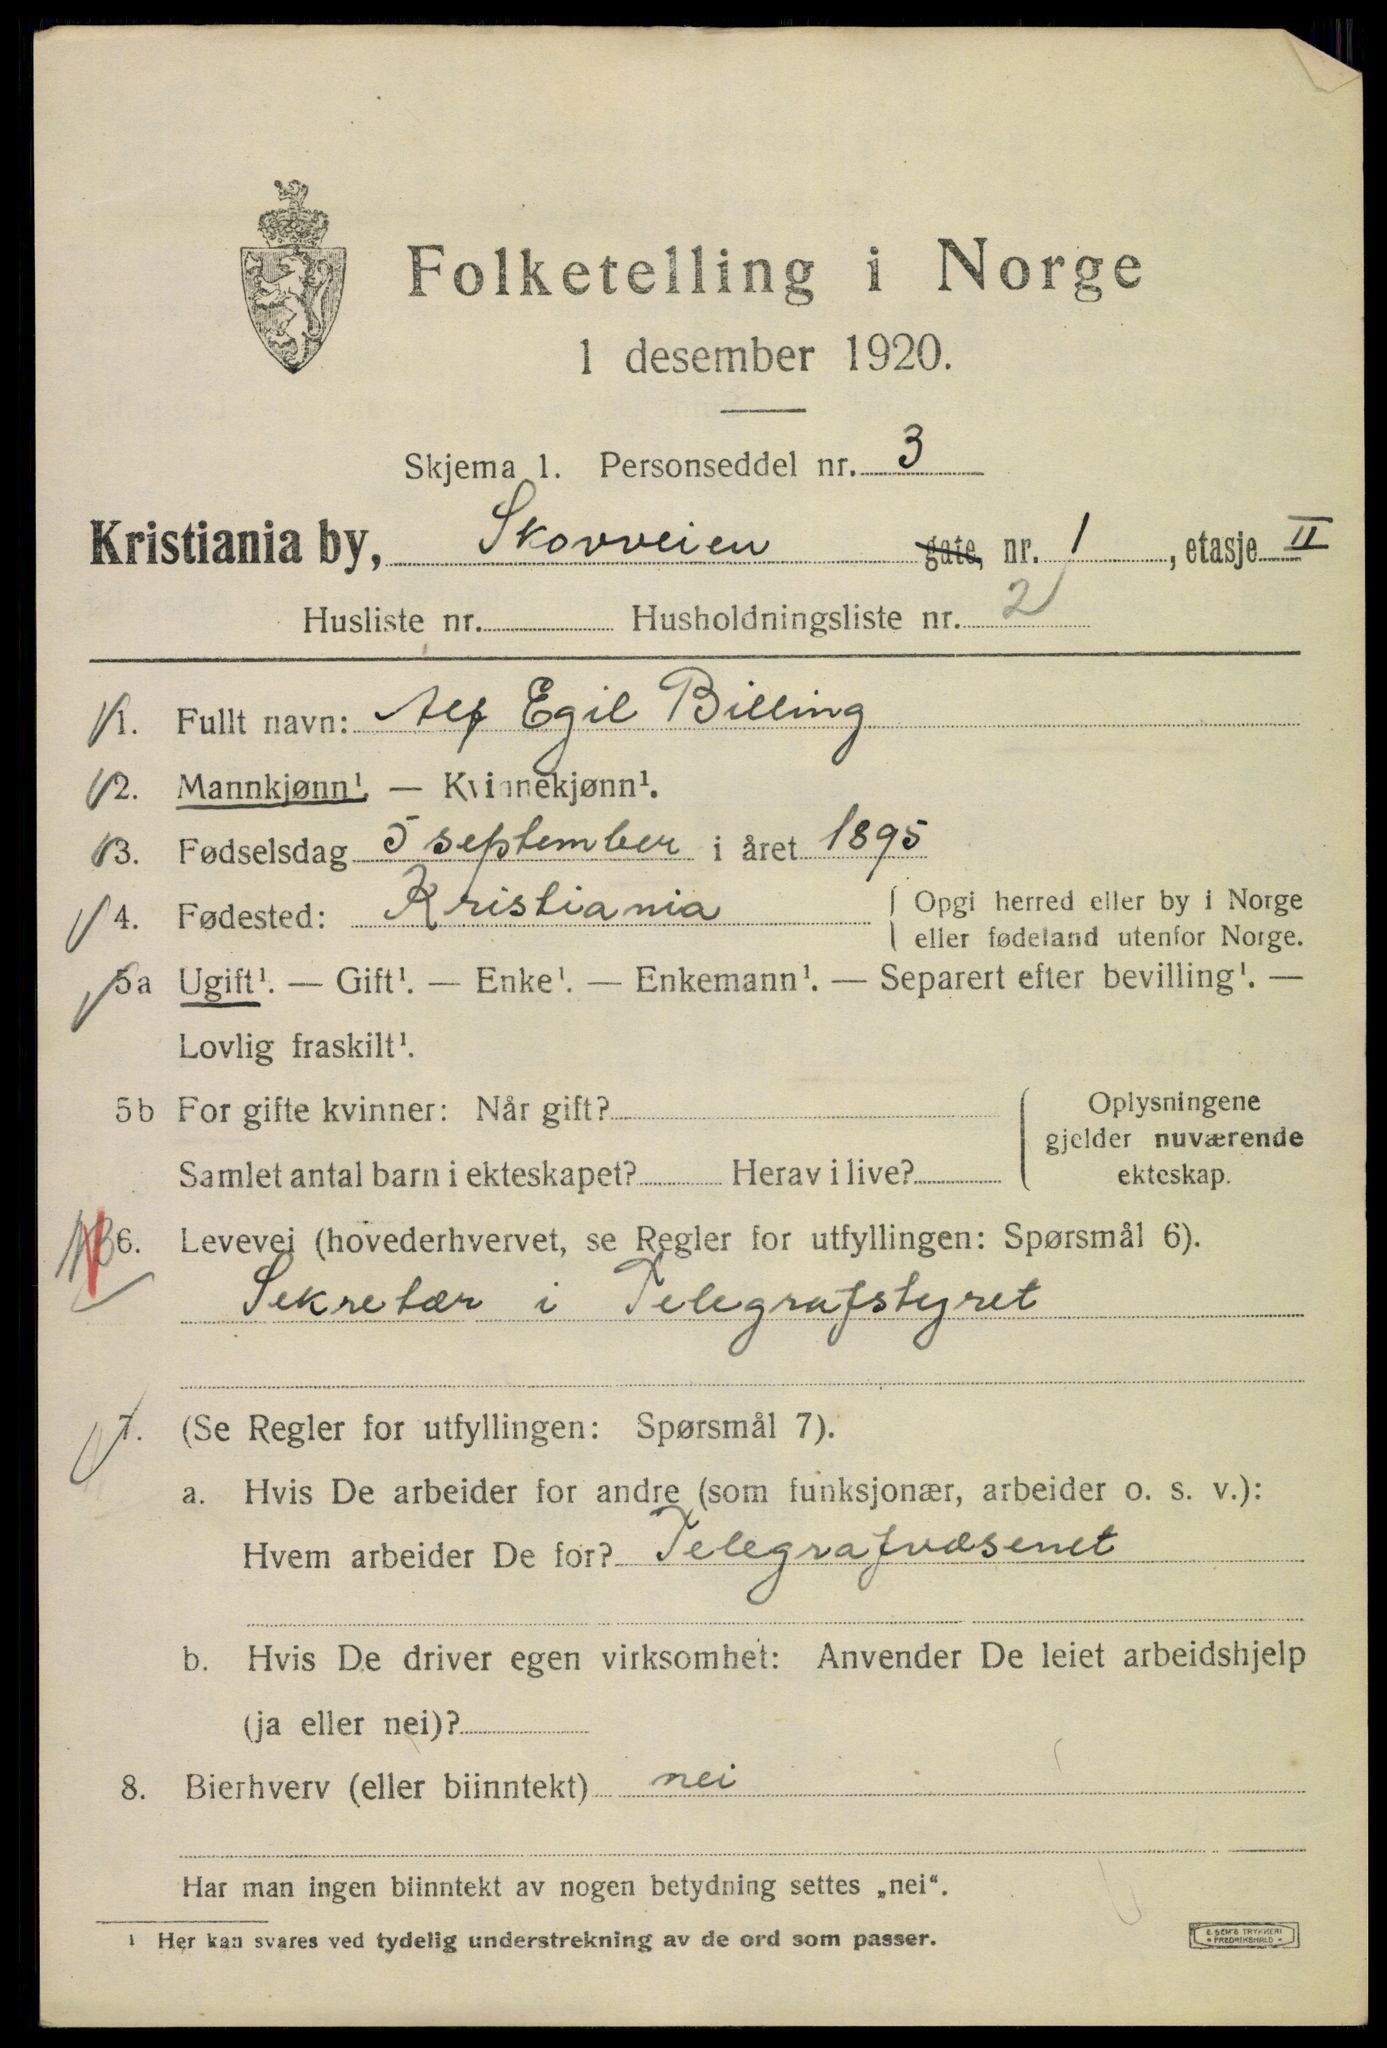 Folketelling i Norge
1 desember 1920.
Skjema 1. Personseddel nr. 3
Kristiania by, Skovveien gate, nr. 1, etasje II
Husliste nr. Husholdningsliste nr. 2
1. Fullt navn: Alf Egil Billing
2. Mannkjønn¹. — Kvinnekjønn¹.
3. Fødselsdag 5 september i året 1895
4. Fødested: Kristiania { Opgi herred eller by i Norge
eller fødeland utenfor Norge.
5a Ugift¹. — Gift¹. — Enke¹. — Enkemann¹. — Separert efter bevilling¹. —
Lovlig fraskilt¹.
5b For gifte kvinner: Når gift? { Oplysningene
gjelder nuværende
Samlet antal barn i ekteskapet? Herav i live? ekteskap.
6. Levevei (hovederhvervet, se Regler for utfyllingen: Spørsmål 6).
Sekretær i Telegrafstyret
7. (Se Regler for utfyllingen: Spørsmål 7).
a. Hvis De arbeider for andre (som funksjonær, arbeider o. s. v.):
Hvem arbeider De for? Telegrafvæsenet
b. Hvis De driver egen virksomhet: Anvender De leiet arbeidshjelp
(ja eller nei)?
8. Bierhverv (eller biinntekt) nei
Har man ingen biinntekt av nogen betydning settes „nei“.
¹ Her kan svares ved tydelig understrekning av de ord som passer.
E. SEM'S TRYKKERI
FREDRIKSHALD